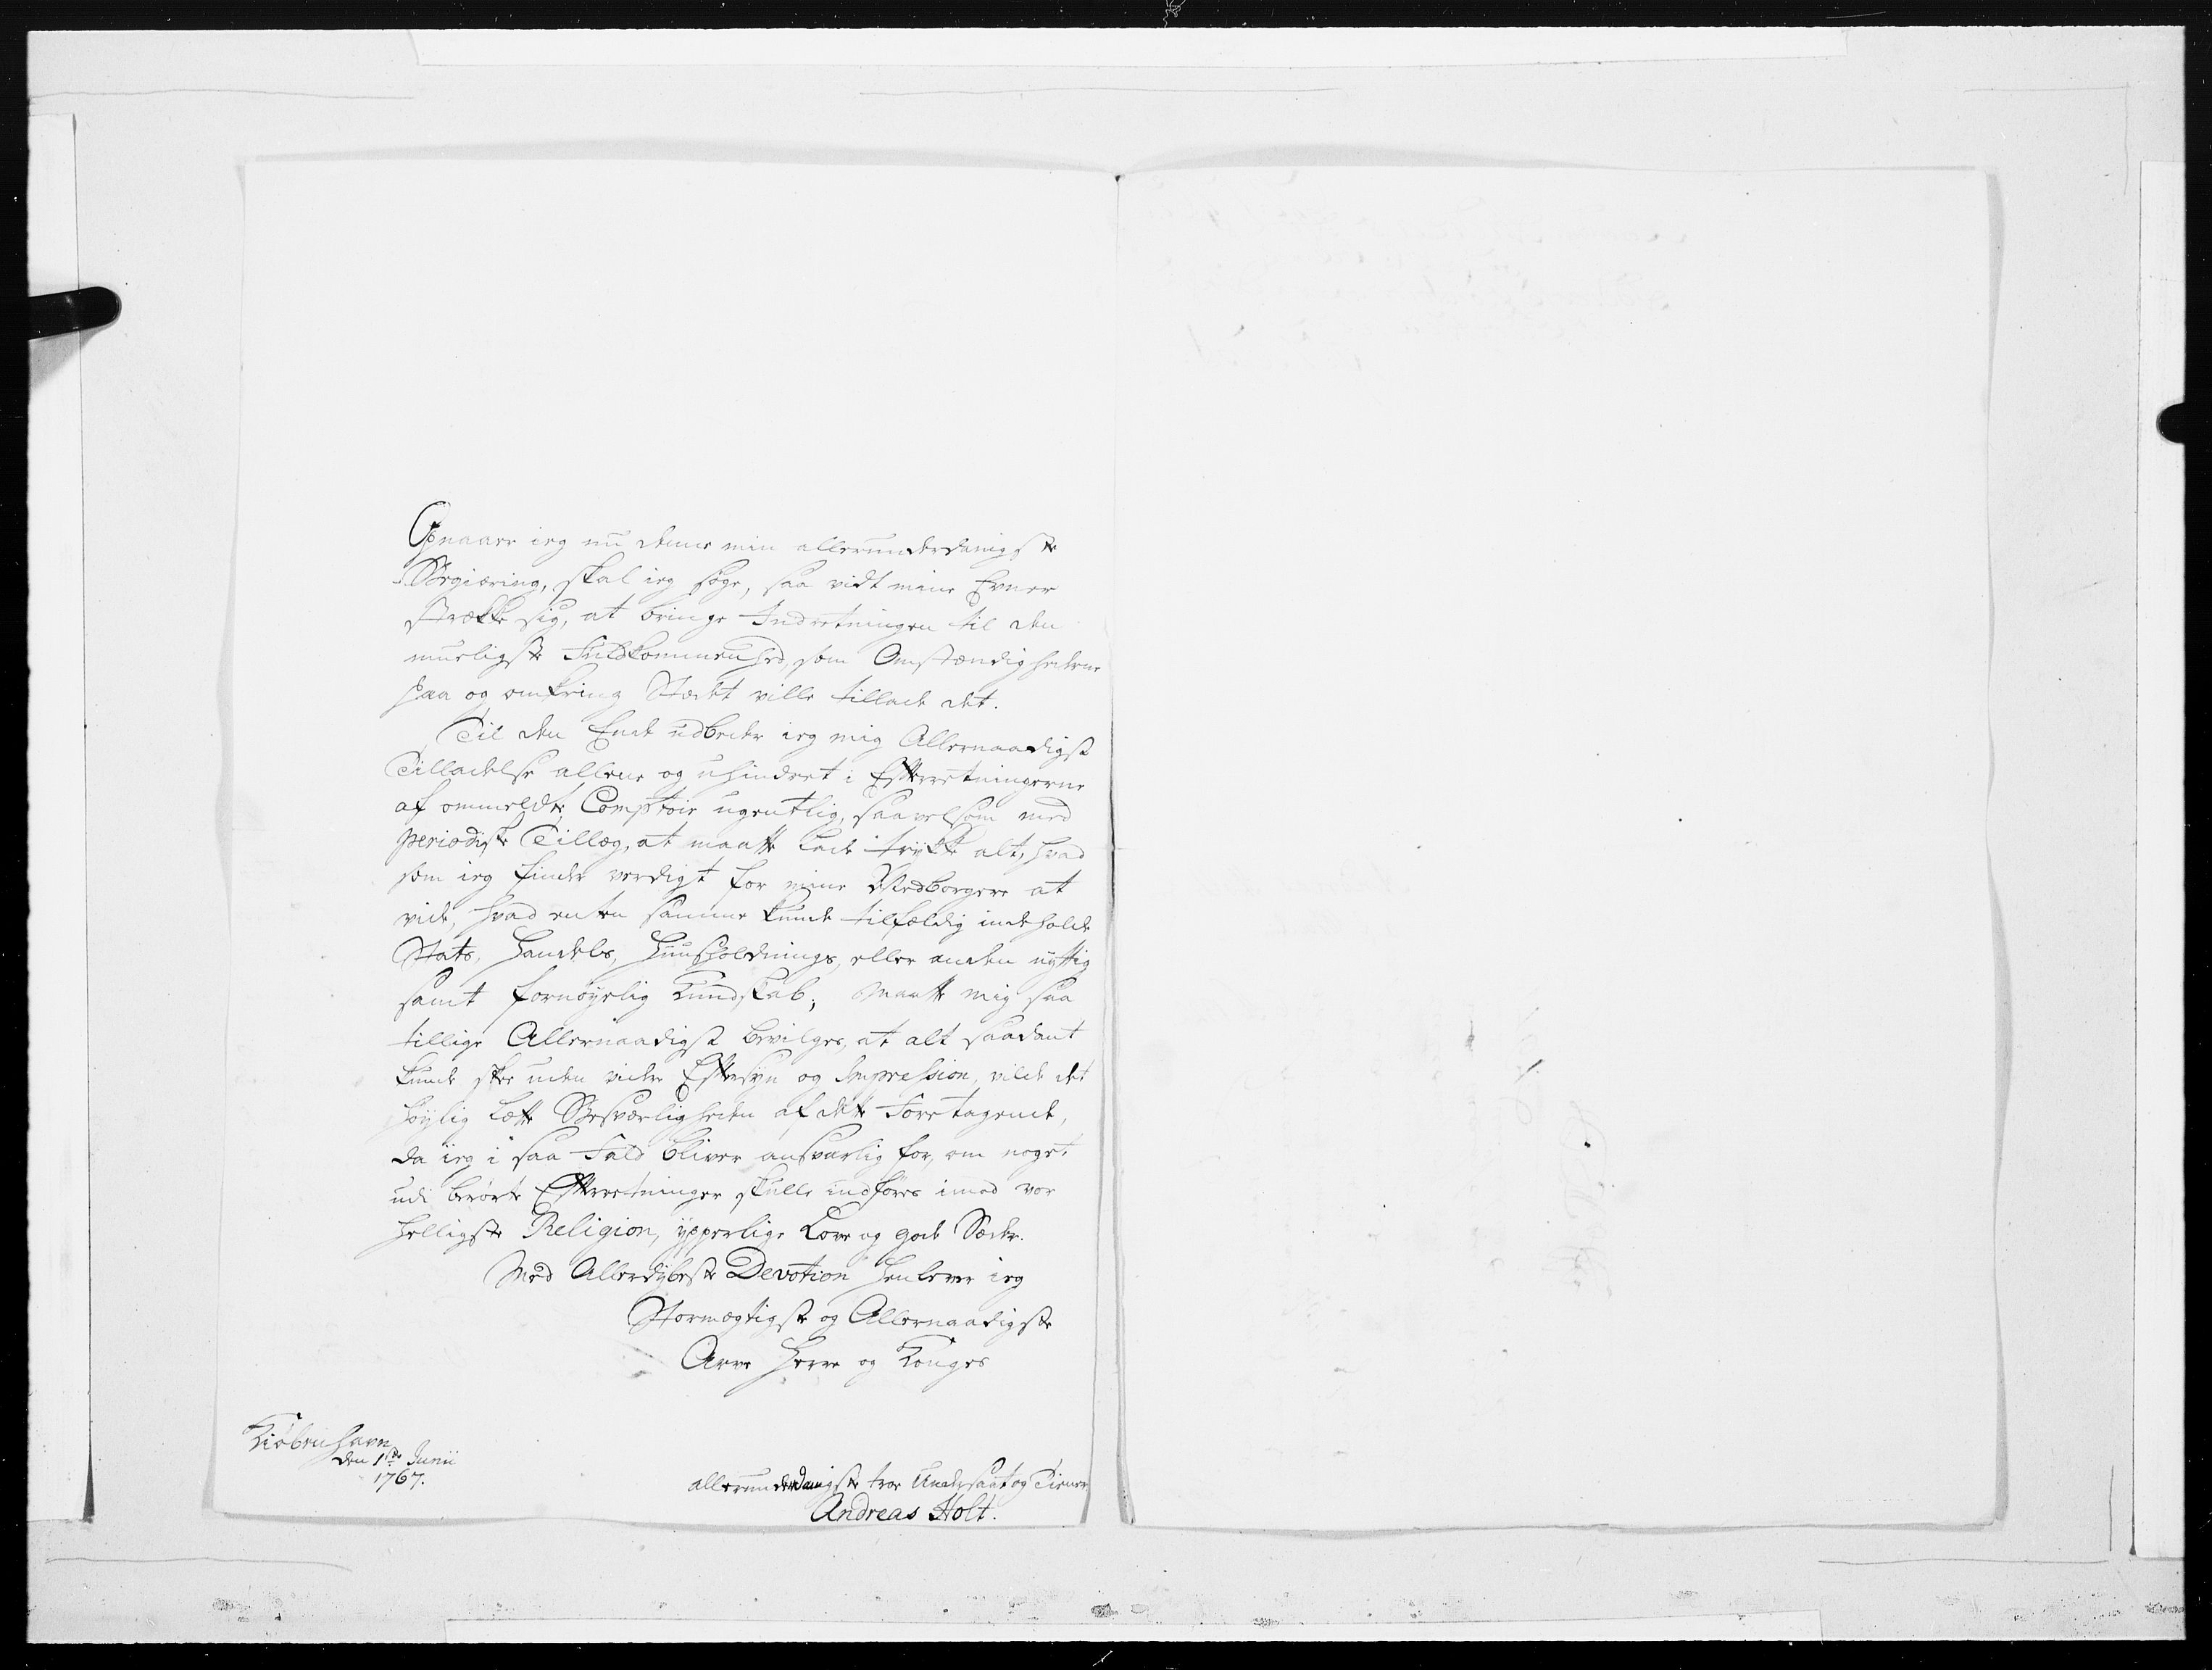 Opnaaer ieg nu denne min allerunderdanigste
Begiæring, skal ieg søge, saa vidt mine Evner
strække sig, at bringe Indretningen til den
mueligste Fuldkommenhed, som Omstændighederne
paa og omkring Stædet ville tillade det.
Til den Ende udbeder ieg mig Allernaadigst
Tilladelse allene og uhindret i Efterretningerne
af ommeldte Comptoir ugentlig, saavelsom med
periodiske Tillæg, at maatte lade trykke alt, hvad
som ieg finder værdigt for mine Medborgere at
vide, hvad enten samme kunde tilfældig indeholde
Stats, Handels, Huusholdnings, eller anden nyttig
samt fornøyelig Kundskab; Maatte mig saa
tillige Allernaadigst bevilges, at alt saadant
kunde skee uden videre Eftersyn og Impression, vilde det
høylig lætte Besværligheden af dette Foretagende,
da ieg i saa Fald bliver ansvarlig for, om noget
udi berørte Efterretninger skulle indføres imod vor
helligste Religion, ypperlige Love og gode Sæder.
Med Allerdybeste Devotion henlever ieg
Stormægtigste og Allernaadigste
Arve Herre og Konges
Kiøbenhavn
den 1ste Junii
1767.
allerunderdanigste troe Undersaat og Tiener
Andreas Holt.